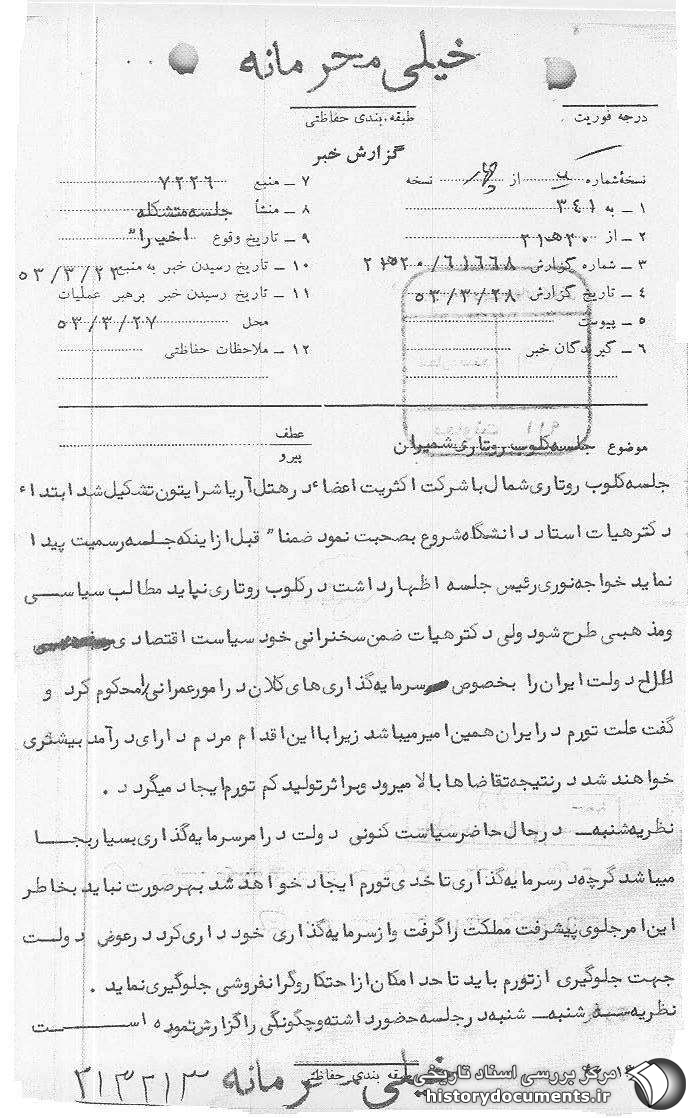 خیلی محرمانه
درجه فوریت
طبقه‌بندی حفاظتی
گزارش خبر
نسخهٔ شماره از نسخه
۱ ـ به ۳۴۱
۲ ـ از ۳۰هـ۲۱
۳ ـ شماره گزارش ۶۱۶۶۸/۲۱۵۲۰
۴ ـ تاریخ گزارش ۵۳/۳/۲۸
۵ ـ پیوست
۶ ـ گیرندگان خبر
۷ ـ منبع ۷۲۲۶
۸ ـ منشأ جلسه متشکله
۹ ـ تاریخ وقوع اخیراً
۱۰ ـ تاریخ رسیدن خبر به منبع ۵۳/۳/۲۲
۱۱ ـ تاریخ رسیدن خبر برهبر عملیات
محل ۵۳/۳/۲۷
۱۲ ـ ملاحظات حفاظتی
موضوع جلسه کلوب روتاری شمیران
عطف
پیرو
جلسه کلوب روتاری شمال با شرکت اکثریت اعضاء در هتل آریا شرایتون تشکیل شد ابتداء
دکتر هیات استاد دانشگاه شروع بصحبت نمود ضمناً قبل از اینکه جلسه رسمیت پیدا
نماید خواجه نوری رئیس جلسه اظهار داشت در کلوب روتاری نباید مطالب سیاسی
ومذهبی طرح شود ولی دکتر هیات ضمن سخنرانی خود سیاست اقتصادی
دولت ایران را بخصوص سرمایه گذاری های کلان در امور عمرانی را محکوم کرد و
گفت علت تورم در ایران همین امر میباشد زیرا با این اقدام مردم دارای درآمد بیشتری
خواهند شد در نتیجه تقاضاها بالا میرود و براثر تولید کم تورم ایجاد میگردد .
نظریه شنبه ـ در حال حاضر سیاست کنونی دولت در امر سرمایه گذاری بسیار بجا
میباشد گرچه در سرمایه گذاری تا حدی تورم ایجاد خواهد شد بهر صورت نباید بخاطر
این امر جلوی پیشرفت مملکت را گرفت و از سرمایه گذاری خودداری کرد در عوض دولت
جهت جلوگیری از تورم باید تا حد امکان از احتکار و گرانفروشی جلوگیری نماید .
نظریه سه شنبه ـ شنبه در جلسه حضور داشته و چگونگی را گزارش نموده است
طبقه بندی حفاظتی
خیلی محرمانه
۳۱۳۲۱۳
مرکز بررسی اسناد تاریخی
historydocuments.ir